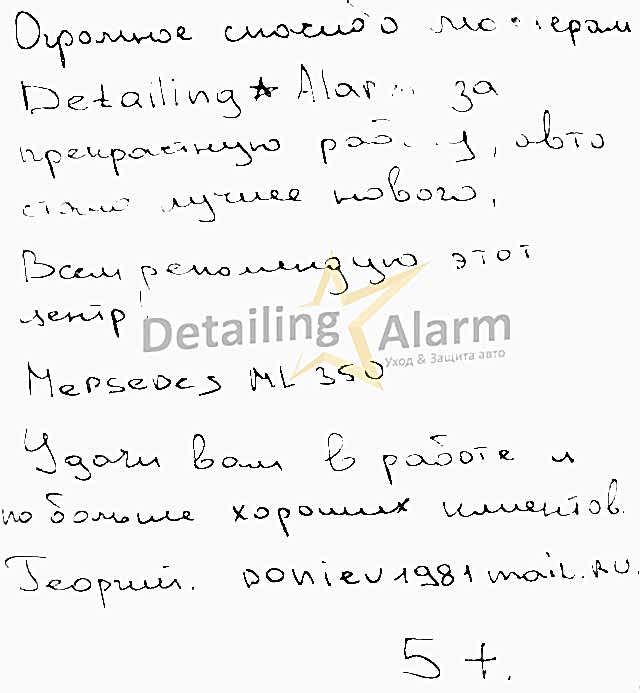 Огромное спасибо мастерам
Detailing ★ Alarm за
прекрасную работу, авто
стало лучшее нового,
Всем рекомендую этот
центр!
Detailing Alarm
Уход & Защита авто
Mepsedes ML 350
Удачи вам в работе и
по больше хороших клиентов.
Георгий. doniev1981mail.RU.
5+.